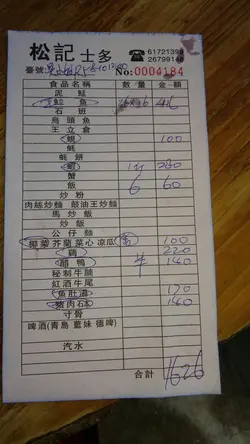 松記 士多 ☎ 61721399
26799148
臺號: No:0004184
食品名稱 數量 金額
泥鯭
魚 26×16 416
石班
烏頭魚
王立倉
蜆 100
蚝
蚝餅
蝦 1斤 280
蟹
飯 6 60
炒粉
肉絲炒麵 鼓油王炒麵
馬炒飯
炒飯
公仔麵
椰菜芥蘭菜心 涼瓜 100
鷄 220
鴨 半 140
秘制牛腩
紅酒牛尾
魚肚溫 170
豬肉石 140
寸骨
啤酒(青島 藍妹 德啤)
汽水
合計 1626